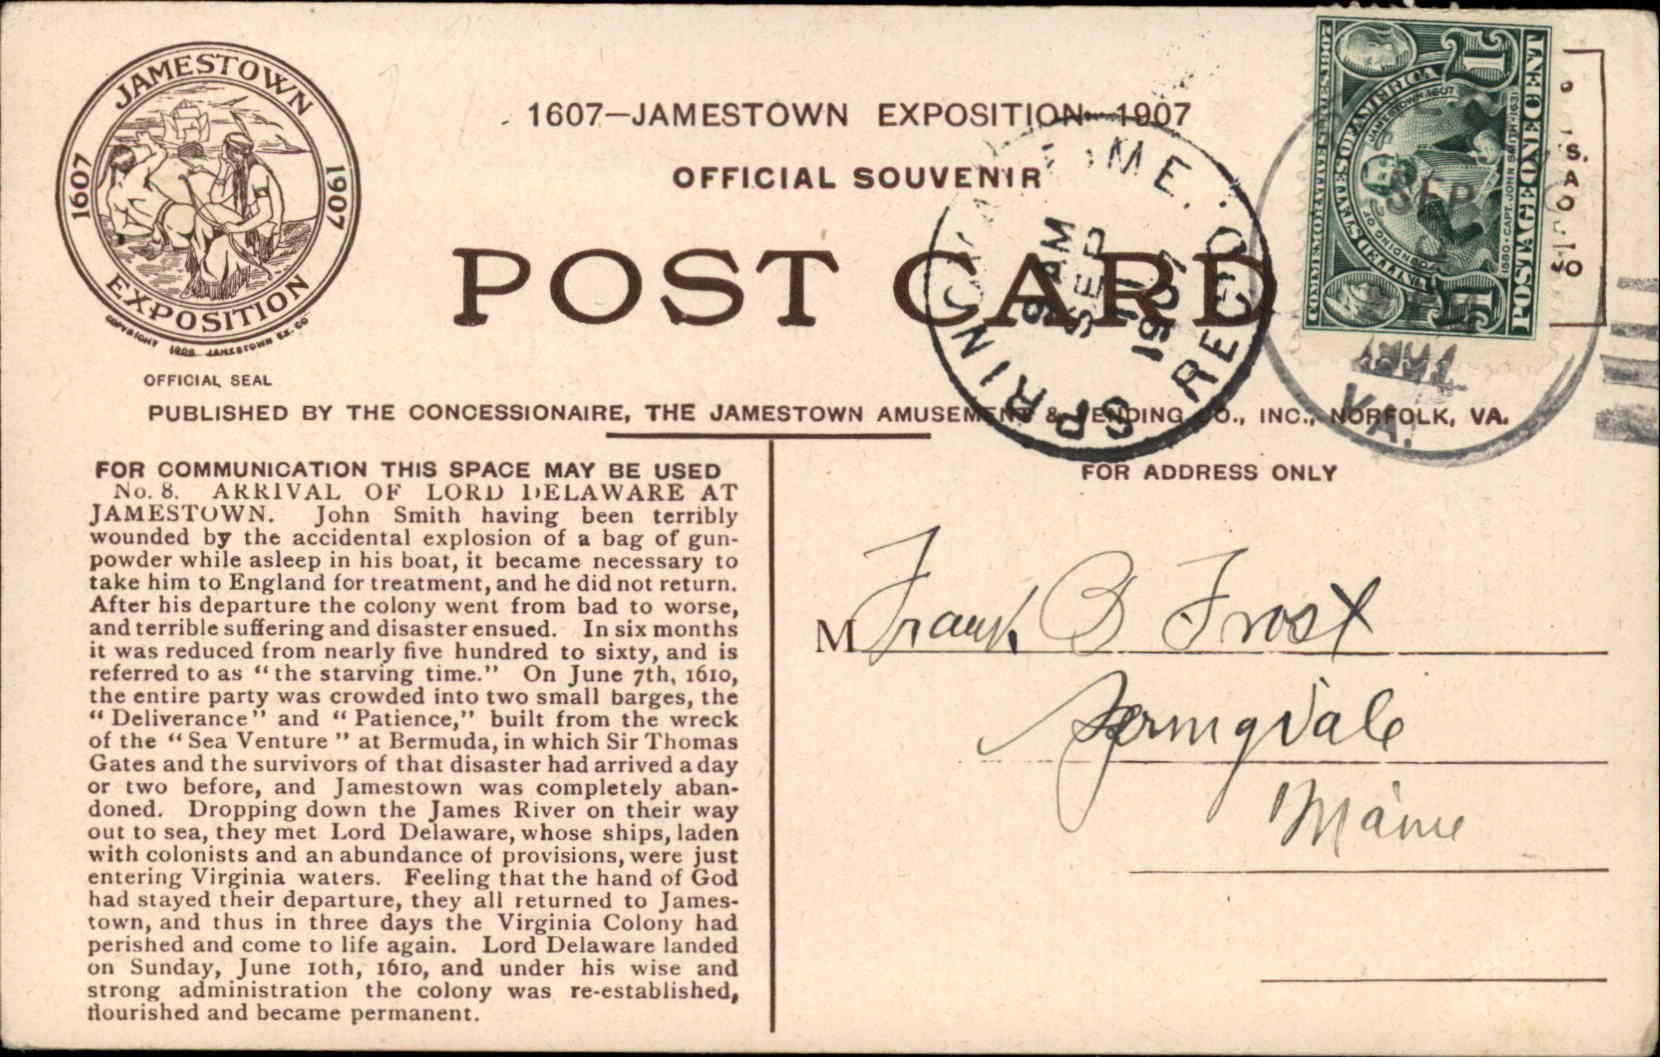 JAMESTOWN
1607 1907
EXPOSITION
COPYRIGHT 1906 JAMESTOWN EX. CO
OFFICIAL SEAL
1607—JAMESTOWN EXPOSITION—1907
OFFICIAL SOUVENIR
POST CARD
PUBLISHED BY THE CONCESSIONAIRE, THE JAMESTOWN AMUSEMENT & VENDING CO., INC., NORFOLK, VA.
COMMEMORATIVE SERIES 1907
UNITED STATES OF AMERICA
FOUNDING OF JAMESTOWN 1607
1580 · CAPT. JOHN SMITH · 1631
POSTAGE ONE CENT
1 1
SPRINGVALE, ME.
9 AM
SEP
1907
REC'D
SEP
VA.
FOR COMMUNICATION THIS SPACE MAY BE USED
No. 8. ARRIVAL OF LORD DELAWARE AT
JAMESTOWN. John Smith having been terribly
wounded by the accidental explosion of a bag of gun-
powder while asleep in his boat, it became necessary to
take him to England for treatment, and he did not return.
After his departure the colony went from bad to worse,
and terrible suffering and disaster ensued. In six months
it was reduced from nearly five hundred to sixty, and is
referred to as "the starving time." On June 7th, 1610,
the entire party was crowded into two small barges, the
"Deliverance" and "Patience," built from the wreck
of the "Sea Venture" at Bermuda, in which Sir Thomas
Gates and the survivors of that disaster had arrived a day
or two before, and Jamestown was completely aban-
doned. Dropping down the James River on their way
out to sea, they met Lord Delaware, whose ships, laden
with colonists and an abundance of provisions, were just
entering Virginia waters. Feeling that the hand of God
had stayed their departure, they all returned to James-
town, and thus in three days the Virginia Colony had
perished and come to life again. Lord Delaware landed
on Sunday, June 10th, 1610, and under his wise and
strong administration the colony was re-established,
flourished and became permanent.
FOR ADDRESS ONLY
M Frank B Frost
Springvale
Maine